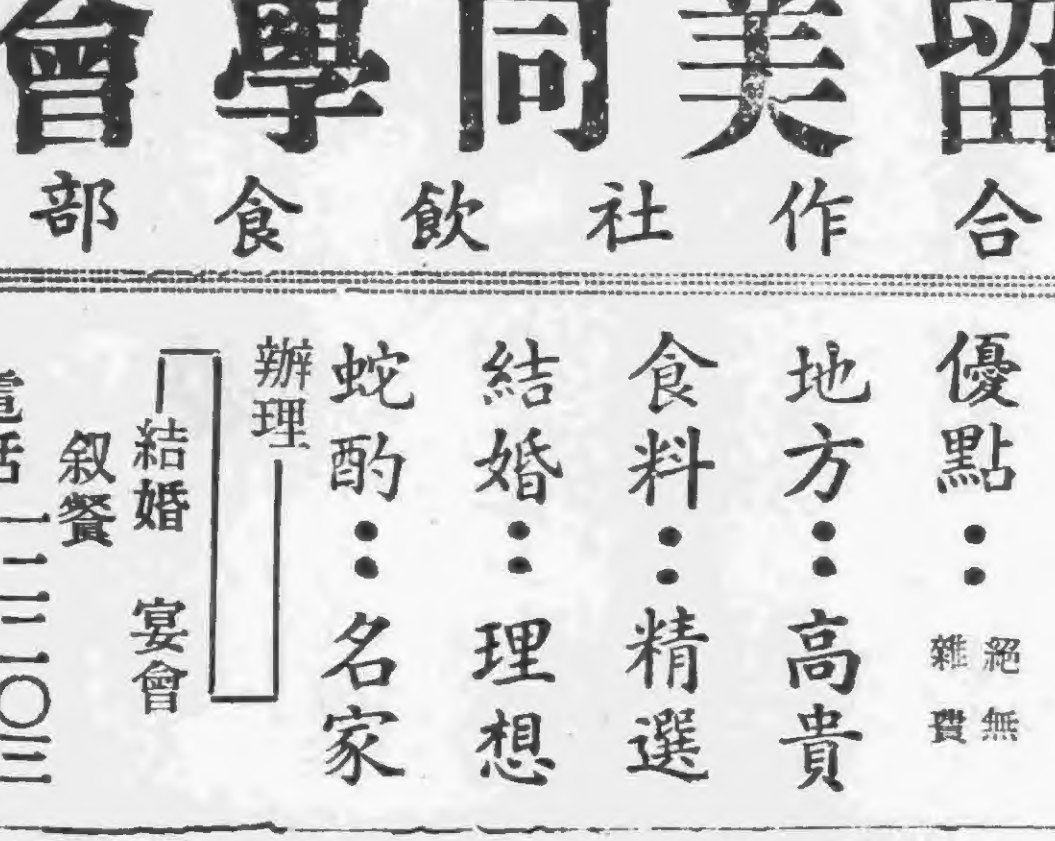 留美同學會
合作社飲食部
優點：絕無雜費
地方：高貴
食料：精選
結婚：理想
蛇酌：名家
辦理
結婚 宴會
叙餐
電話